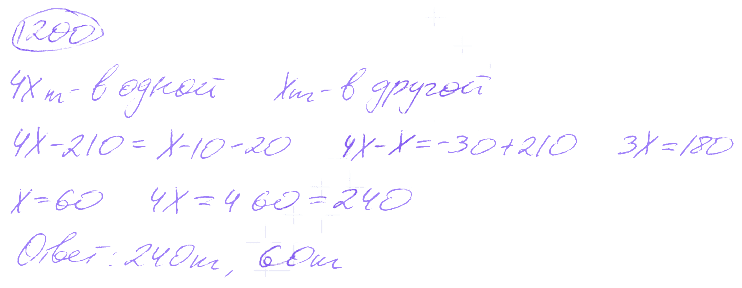 1200
4х т - в одной   х т - в другой
4х-210=х-10-20   4х-х=-30+210   3х=180
х=60   4х=4 60=240
Ответ: 240т, 60т